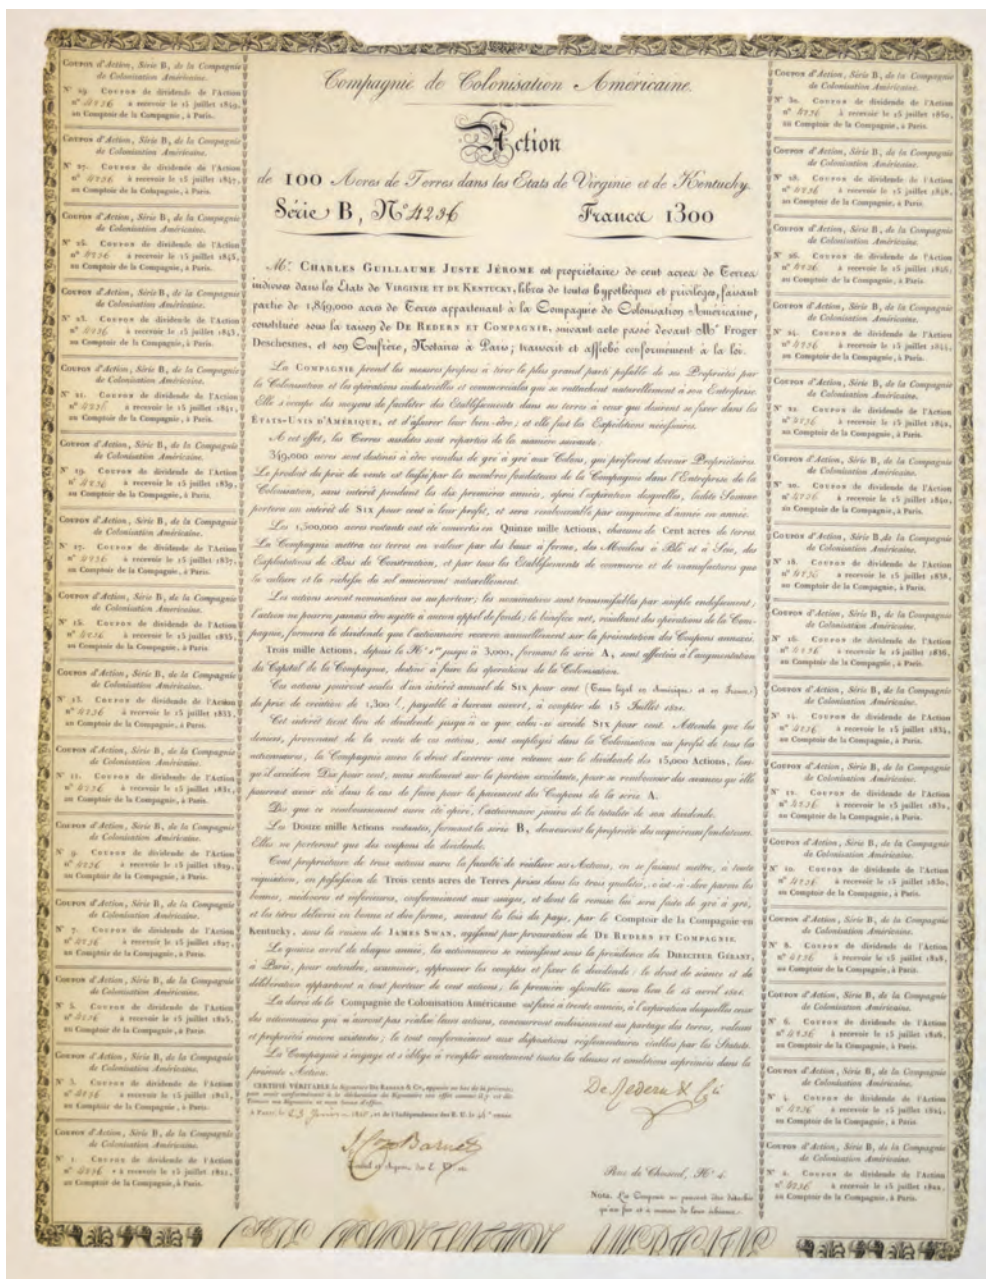 Coupon d'Action, Série B, de la Compagnie
de Colonisation Américaine.
N° 29. Coupon de dividende de l'Action
n° 4236 à recevoir le 15 juillet 1849,
au Comptoir de la Compagnie, à Paris.
Coupon d'Action, Série B, de la Compagnie
de Colonisation Américaine.
N° 27. Coupon de dividende de l'Action
n° 4236 à recevoir le 15 juillet 1847,
au Comptoir de la Compagnie, à Paris.
Coupon d'Action, Série B, de la Compagnie
de Colonisation Américaine.
N° 25. Coupon de dividende de l'Action
n° 4236 à recevoir le 15 juillet 1845,
au Comptoir de la Compagnie, à Paris.
Coupon d'Action, Série B, de la Compagnie
de Colonisation Américaine.
N° 23. Coupon de dividende de l'Action
n° 4236 à recevoir le 15 juillet 1843,
au Comptoir de la Compagnie, à Paris.
Coupon d'Action, Série B, de la Compagnie
de Colonisation Américaine.
N° 21. Coupon de dividende de l'Action
n° 4236 à recevoir le 15 juillet 1841,
au Comptoir de la Compagnie, à Paris.
Coupon d'Action, Série B, de la Compagnie
de Colonisation Américaine.
N° 19. Coupon de dividende de l'Action
n° 4236 à recevoir le 15 juillet 1839,
au Comptoir de la Compagnie, à Paris.
Coupon d'Action, Série B, de la Compagnie
de Colonisation Américaine.
N° 17. Coupon de dividende de l'Action
n° 4236 à recevoir le 15 juillet 1837,
au Comptoir de la Compagnie, à Paris.
Coupon d'Action, Série B, de la Compagnie
de Colonisation Américaine.
N° 15. Coupon de dividende de l'Action
n° 4236 à recevoir le 15 juillet 1835,
au Comptoir de la Compagnie, à Paris.
Coupon d'Action, Série B, de la Compagnie
de Colonisation Américaine.
N° 13. Coupon de dividende de l'Action
n° 4236 à recevoir le 15 juillet 1833,
au Comptoir de la Compagnie, à Paris.
Coupon d'Action, Série B, de la Compagnie
de Colonisation Américaine.
N° 11. Coupon de dividende de l'Action
n° 4236 à recevoir le 15 juillet 1831,
au Comptoir de la Compagnie, à Paris.
Coupon d'Action, Série B, de la Compagnie
de Colonisation Américaine.
N° 9. Coupon de dividende de l'Action
n° 4236 à recevoir le 15 juillet 1829,
au Comptoir de la Compagnie, à Paris.
Coupon d'Action, Série B, de la Compagnie
de Colonisation Américaine.
N° 7. Coupon de dividende de l'Action
n° 4236 à recevoir le 15 juillet 1827,
au Comptoir de la Compagnie, à Paris.
Coupon d'Action, Série B, de la Compagnie
de Colonisation Américaine.
N° 5. Coupon de dividende de l'Action
n° 4236 à recevoir le 15 juillet 1825,
au Comptoir de la Compagnie, à Paris.
Coupon d'Action, Série B, de la Compagnie
de Colonisation Américaine.
N° 3. Coupon de dividende de l'Action
n° 4236 à recevoir le 15 juillet 1823,
au Comptoir de la Compagnie, à Paris.
Coupon d'Action, Série B, de la Compagnie
de Colonisation Américaine.
N° 1. Coupon de dividende de l'Action
n° 4236 à recevoir le 15 juillet 1821,
au Comptoir de la Compagnie, à Paris.
Compagnie de Colonisation Américaine.
Action
de 100 Acres de Terres dans les États de Virginie et de Kentucky.
Série B, N° 4236 Francs 1300
Mr. Charles Guillaume Juste Jérome est propriétaire de cent acres de Terres
indivises dans les États de Virginie et de Kentucky, libres de toutes hypothèques et privilèges, faisant
partie de 1,849,000 acres de Terres appartenant à la Compagnie de Colonisation Américaine,
constituée sous la raison de De Redern et Compagnie, suivant acte passé devant Me Froger
Deschesnes, et son Confrère, Notaires à Paris; transcrit et affiché conformément à la loi.
La Compagnie prend les mesures propres à tirer le plus grand parti possible de ses Propriétés par
la Colonisation et les opérations industrielles et commerciales qui se rattachent naturellement à son Entreprise.
Elle s'occupe des moyens de faciliter des Établissements dans ses terres à ceux qui désirent se fixer dans les
États-Unis d'Amérique, et d'assurer leur bien-être; et elle fait les Expéditions nécessaires.
A cet effet, les Terres susdites sont réparties de la manière suivante:
349,000 acres sont destinés à être vendus de gré à gré aux Colons, qui préfèrent devenir Propriétaires.
Le produit du prix de vente est laissé par les membres fondateurs de la Compagnie dans l'Entreprise de la
Colonisation, sans intérêt pendant les dix premières années, après l'expiration desquelles, ladite Somme
portera un intérêt de Six pour cent à leur profit, et sera remboursable par cinquième d'année en année.
Les 1,500,000 acres restants ont été convertis en Quinze mille Actions, chacune de Cent acres de terres.
La Compagnie mettra ces terres en valeur par des baux à ferme, des Moulins à Blé et à Scie, des
Exploitations de Bois de Construction, et par tous les Établissements de commerce et de manufactures que
la culture et la richesse du sol amèneront naturellement.
Les actions seront nominatives ou au porteur; les nominatives sont transmissibles par simple endossement;
l'action ne pourra jamais être sujette à aucun appel de fonds; le bénéfice net, résultant des opérations de la Com-
pagnie, formera le dividende que l'actionnaire recevra annuellement sur la présentation des Coupons annexés.
Trois mille Actions, depuis le N° 1er jusqu'à 3,000, formant la série A, sont affectées à l'augmentation
du Capital de la Compagnie, destiné à faire les opérations de la Colonisation.
Ces actions jouiront seules d'un intérêt annuel de Six pour cent (Taux légal en Amérique et en France)
du prix de création de 1,300 f., payable à bureau ouvert, à compter du 15 Juillet 1821.
Cet intérêt tient lieu de dividende jusqu'à ce que celui-ci excède Six pour cent. Attendu que les
deniers, provenant de la vente de ces actions, sont employés dans la Colonisation au profit de tous les
actionnaires, la Compagnie aura le droit d'exercer une retenue sur le dividende des 15,000 Actions, lors-
qu'il excèdera Dix pour cent, mais seulement sur la portion excédante, pour se rembourser des avances qu'elle
pourrait avoir été dans le cas de faire pour le paiement des Coupons de la série A.
Dès que ce remboursement aura été opéré, l'actionnaire jouira de la totalité de son dividende.
Les Douze mille Actions restantes, formant la série B, demeurent la propriété des acquéreurs fondateurs.
Elles ne porteront que des coupons de dividende.
Tout propriétaire de trois actions aura la faculté de réaliser ses Actions, en se faisant mettre, à toute
réquisition, en possession de Trois cents acres de Terres prises dans les trois qualités, c'est-à-dire parmi les
bonnes, médiocres et inférieures, conformément aux usages, et dont la remise lui sera faite de gré à gré,
et les titres délivrés en bonne et due forme, suivant les lois du pays, par le Comptoir de la Compagnie en
Kentucky, sous la raison de James Swan, agissant par procuration de De Redern et Compagnie.
Le quinze avril de chaque année, les actionnaires se réunissent sous la présidence du Directeur Gérant,
à Paris, pour entendre, examiner, approuver les comptes et fixer le dividende; le droit de séance et de
délibération appartient à tout porteur de cent actions; la première assemblée aura lieu le 15 avril 1821.
La durée de la Compagnie de Colonisation Américaine est fixée à trente années, à l'expiration desquelles ceux
des actionnaires qui n'auront pas réalisé leurs actions, concourront indivisement au partage des terres, valeurs
et propriétés encore existantes; le tout conformément aux dispositions réglementaires établies par les Statuts.
La Compagnie s'engage et s'oblige à remplir exactement toutes les clauses et conditions exprimées dans la
présente Action.
Certifié véritable la signature De Redern & Cie, apposée au bas de la présente,
A Paris, le 23 Janvier et de l'Indépendance des E. U. le
De Redern & Cie
Barnet
Rue de Choiseul, N°
Nota. Les Coupons ne peuvent être détachés
qu'au fur et à mesure de leur échéance.
Coupon d'Action, Série B, de la Compagnie
de Colonisation Américaine.
N° 30. Coupon de dividende de l'Action
n° 4236 à recevoir le 15 juillet 1850,
au Comptoir de la Compagnie, à Paris.
Coupon d'Action, Série B, de la Compagnie
de Colonisation Américaine.
N° 28. Coupon de dividende de l'Action
n° 4236 à recevoir le 15 juillet 1848,
au Comptoir de la Compagnie, à Paris.
Coupon d'Action, Série B, de la Compagnie
de Colonisation Américaine.
N° 26. Coupon de dividende de l'Action
n° 4236 à recevoir le 15 juillet 1846,
au Comptoir de la Compagnie, à Paris.
Coupon d'Action, Série B, de la Compagnie
de Colonisation Américaine.
N° 24. Coupon de dividende de l'Action
n° 4236 à recevoir le 15 juillet 1844,
au Comptoir de la Compagnie, à Paris.
Coupon d'Action, Série B, de la Compagnie
de Colonisation Américaine.
N° 22. Coupon de dividende de l'Action
n° 4236 à recevoir le 15 juillet 1842,
au Comptoir de la Compagnie, à Paris.
Coupon d'Action, Série B, de la Compagnie
de Colonisation Américaine.
N° 20. Coupon de dividende de l'Action
n° 4236 à recevoir le 15 juillet 1840,
au Comptoir de la Compagnie, à Paris.
Coupon d'Action, Série B, de la Compagnie
de Colonisation Américaine.
N° 18. Coupon de dividende de l'Action
n° 4236 à recevoir le 15 juillet 1838,
au Comptoir de la Compagnie, à Paris.
Coupon d'Action, Série B, de la Compagnie
de Colonisation Américaine.
N° 16. Coupon de dividende de l'Action
n° 4236 à recevoir le 15 juillet 1836,
au Comptoir de la Compagnie, à Paris.
Coupon d'Action, Série B, de la Compagnie
de Colonisation Américaine.
N° 14. Coupon de dividende de l'Action
n° 4236 à recevoir le 15 juillet 1834,
au Comptoir de la Compagnie, à Paris.
Coupon d'Action, Série B, de la Compagnie
de Colonisation Américaine.
N° 12. Coupon de dividende de l'Action
n° 4236 à recevoir le 15 juillet 1832,
au Comptoir de la Compagnie, à Paris.
Coupon d'Action, Série B, de la Compagnie
de Colonisation Américaine.
N° 10. Coupon de dividende de l'Action
n° 4236 à recevoir le 15 juillet 1830,
au Comptoir de la Compagnie, à Paris.
Coupon d'Action, Série B, de la Compagnie
de Colonisation Américaine.
N° 8. Coupon de dividende de l'Action
n° 4236 à recevoir le 15 juillet 1828,
au Comptoir de la Compagnie, à Paris.
Coupon d'Action, Série B, de la Compagnie
de Colonisation Américaine.
N° 6. Coupon de dividende de l'Action
n° 4236 à recevoir le 15 juillet 1826,
au Comptoir de la Compagnie, à Paris.
Coupon d'Action, Série B, de la Compagnie
de Colonisation Américaine.
N° 4. Coupon de dividende de l'Action
n° 4236 à recevoir le 15 juillet 1824,
au Comptoir de la Compagnie, à Paris.
Coupon d'Action, Série B, de la Compagnie
de Colonisation Américaine.
N° 2. Coupon de dividende de l'Action
n° 4236 à recevoir le 15 juillet 1822,
au Comptoir de la Compagnie, à Paris.